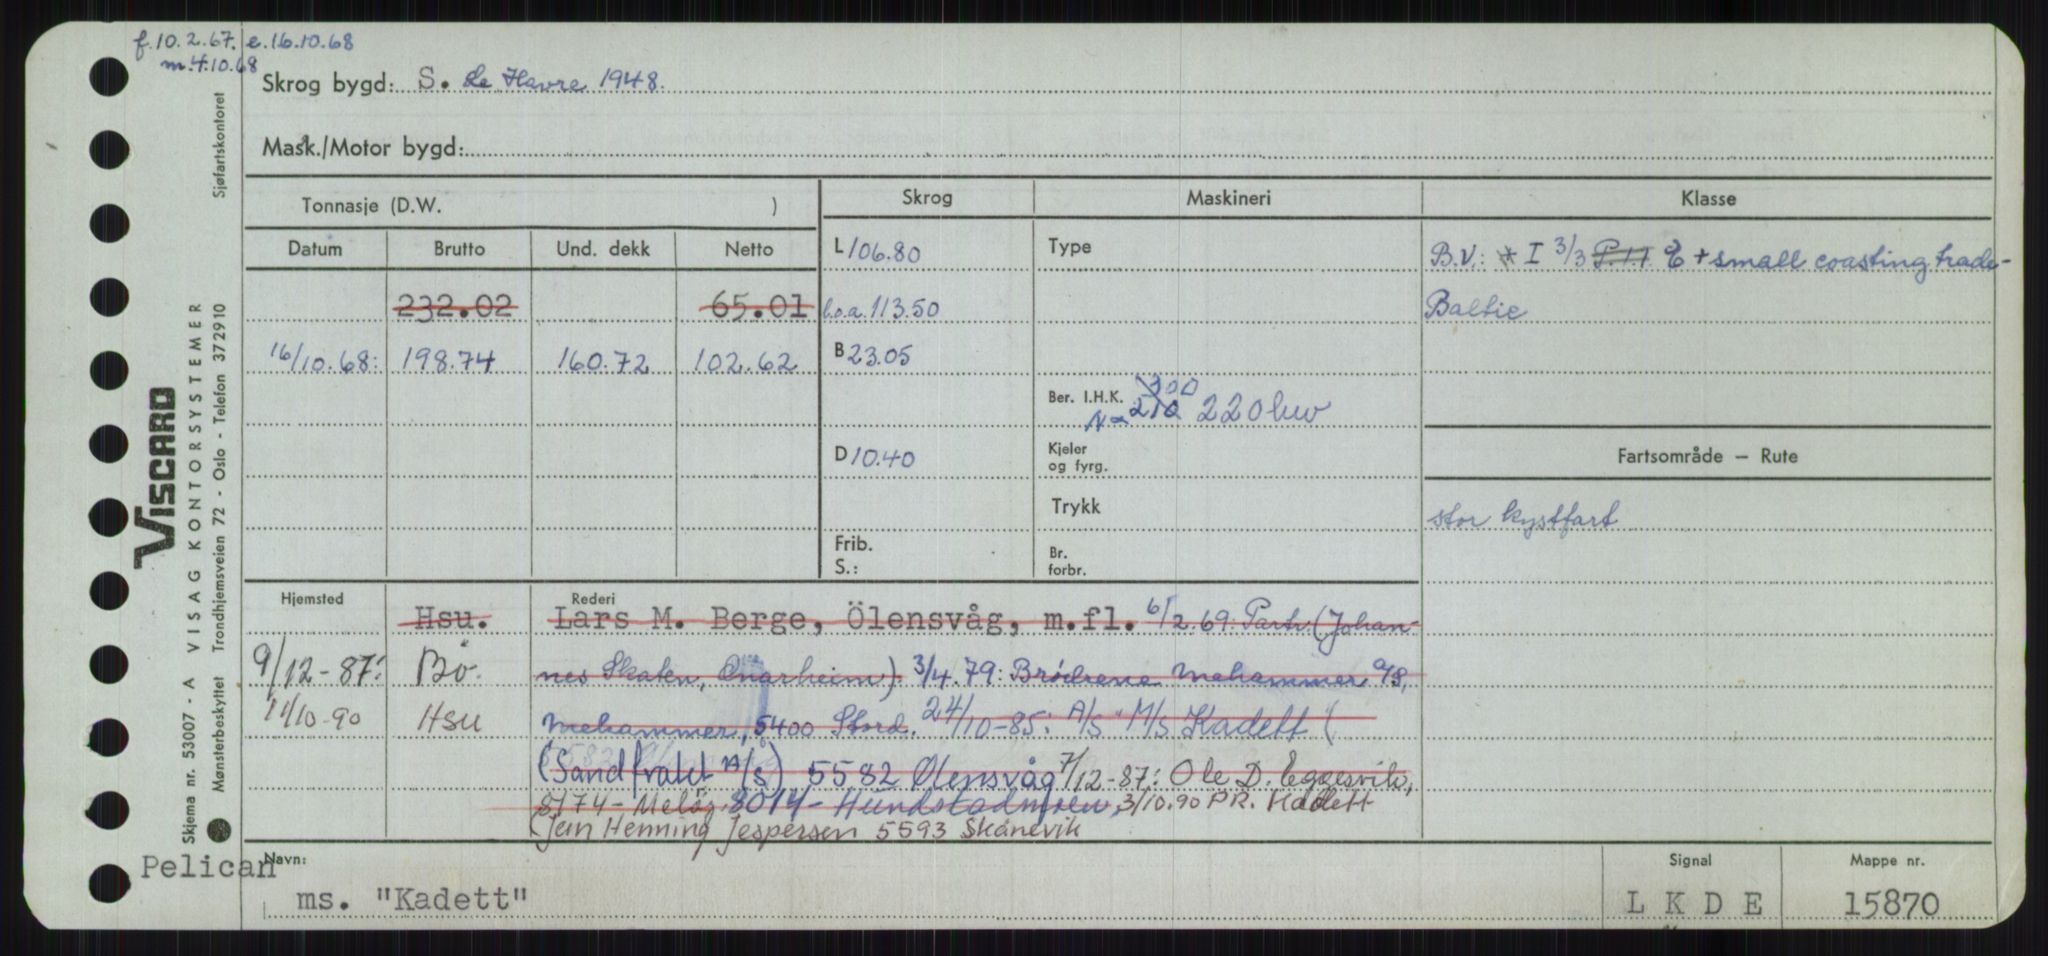 f.10.2.67. e.16.10.68
m.4.10.68
Skrog bygd: S. Le Havre 1948.
Mask./Motor bygd:
Tonnasje (D.W. )
Skrog
Maskineri
Klasse
Datum Brutto Und. dekk Netto
L 106.80
Type
B.V.: * I 3/3 P.1.1 & + small coasting trade-
232.02 65.01
l.o.a. 113.50
Baltic
16/10.68: 198.74 160.72 102.62
B 23.05
Ber. I.H.K. 300
210 220 hw
D 10.40
Kjeler
og fyrg.
Fartsområde – Rute
Trykk
stor kystfart
Frib.
S.:
Br.
forbr.
Hjemsted
Rederi
Hsu. Lars M. Berge, Ölensvåg, m.fl. 6/2.69: Partr. (Johan-
9/12-87: Bö. nes Skaten, Onarheim). 3/4.79: Brødrene Mehammer A/S,
11/10-90 Hsu Mehammer, 5400 Stord. 24/10-85: A/S M/S Kadett (
(Sandfrakt A/S) 5582 Ølensvåg 7/12-87: Ole D. Eggesvik,
8174 - Meløy. 8014 - Hundstadmyren, 3/10.90 P.R. Kadett
(Jan Henning Jespersen 5593 Skånevik
Navn:
Pelican
ms. "Kadett"
Signal
L K D E
Mappe nr.
15870
VISCARD
Skjema nr. 53007 - A VISAG KONTORSYSTEMER Sjøfartskontoret
Mønsterbeskyttet Trondhjemsveien 72 - Oslo - Telefon 372910